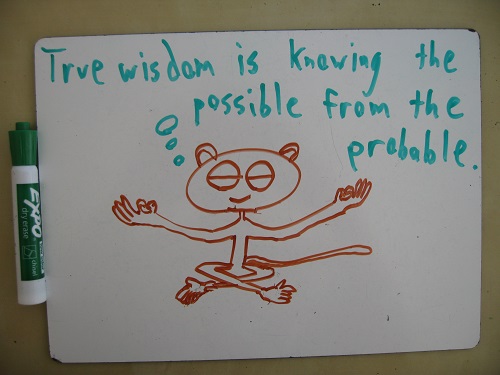 True wisdom is knowing the
possible from the
probable.
EXPO
dry erase